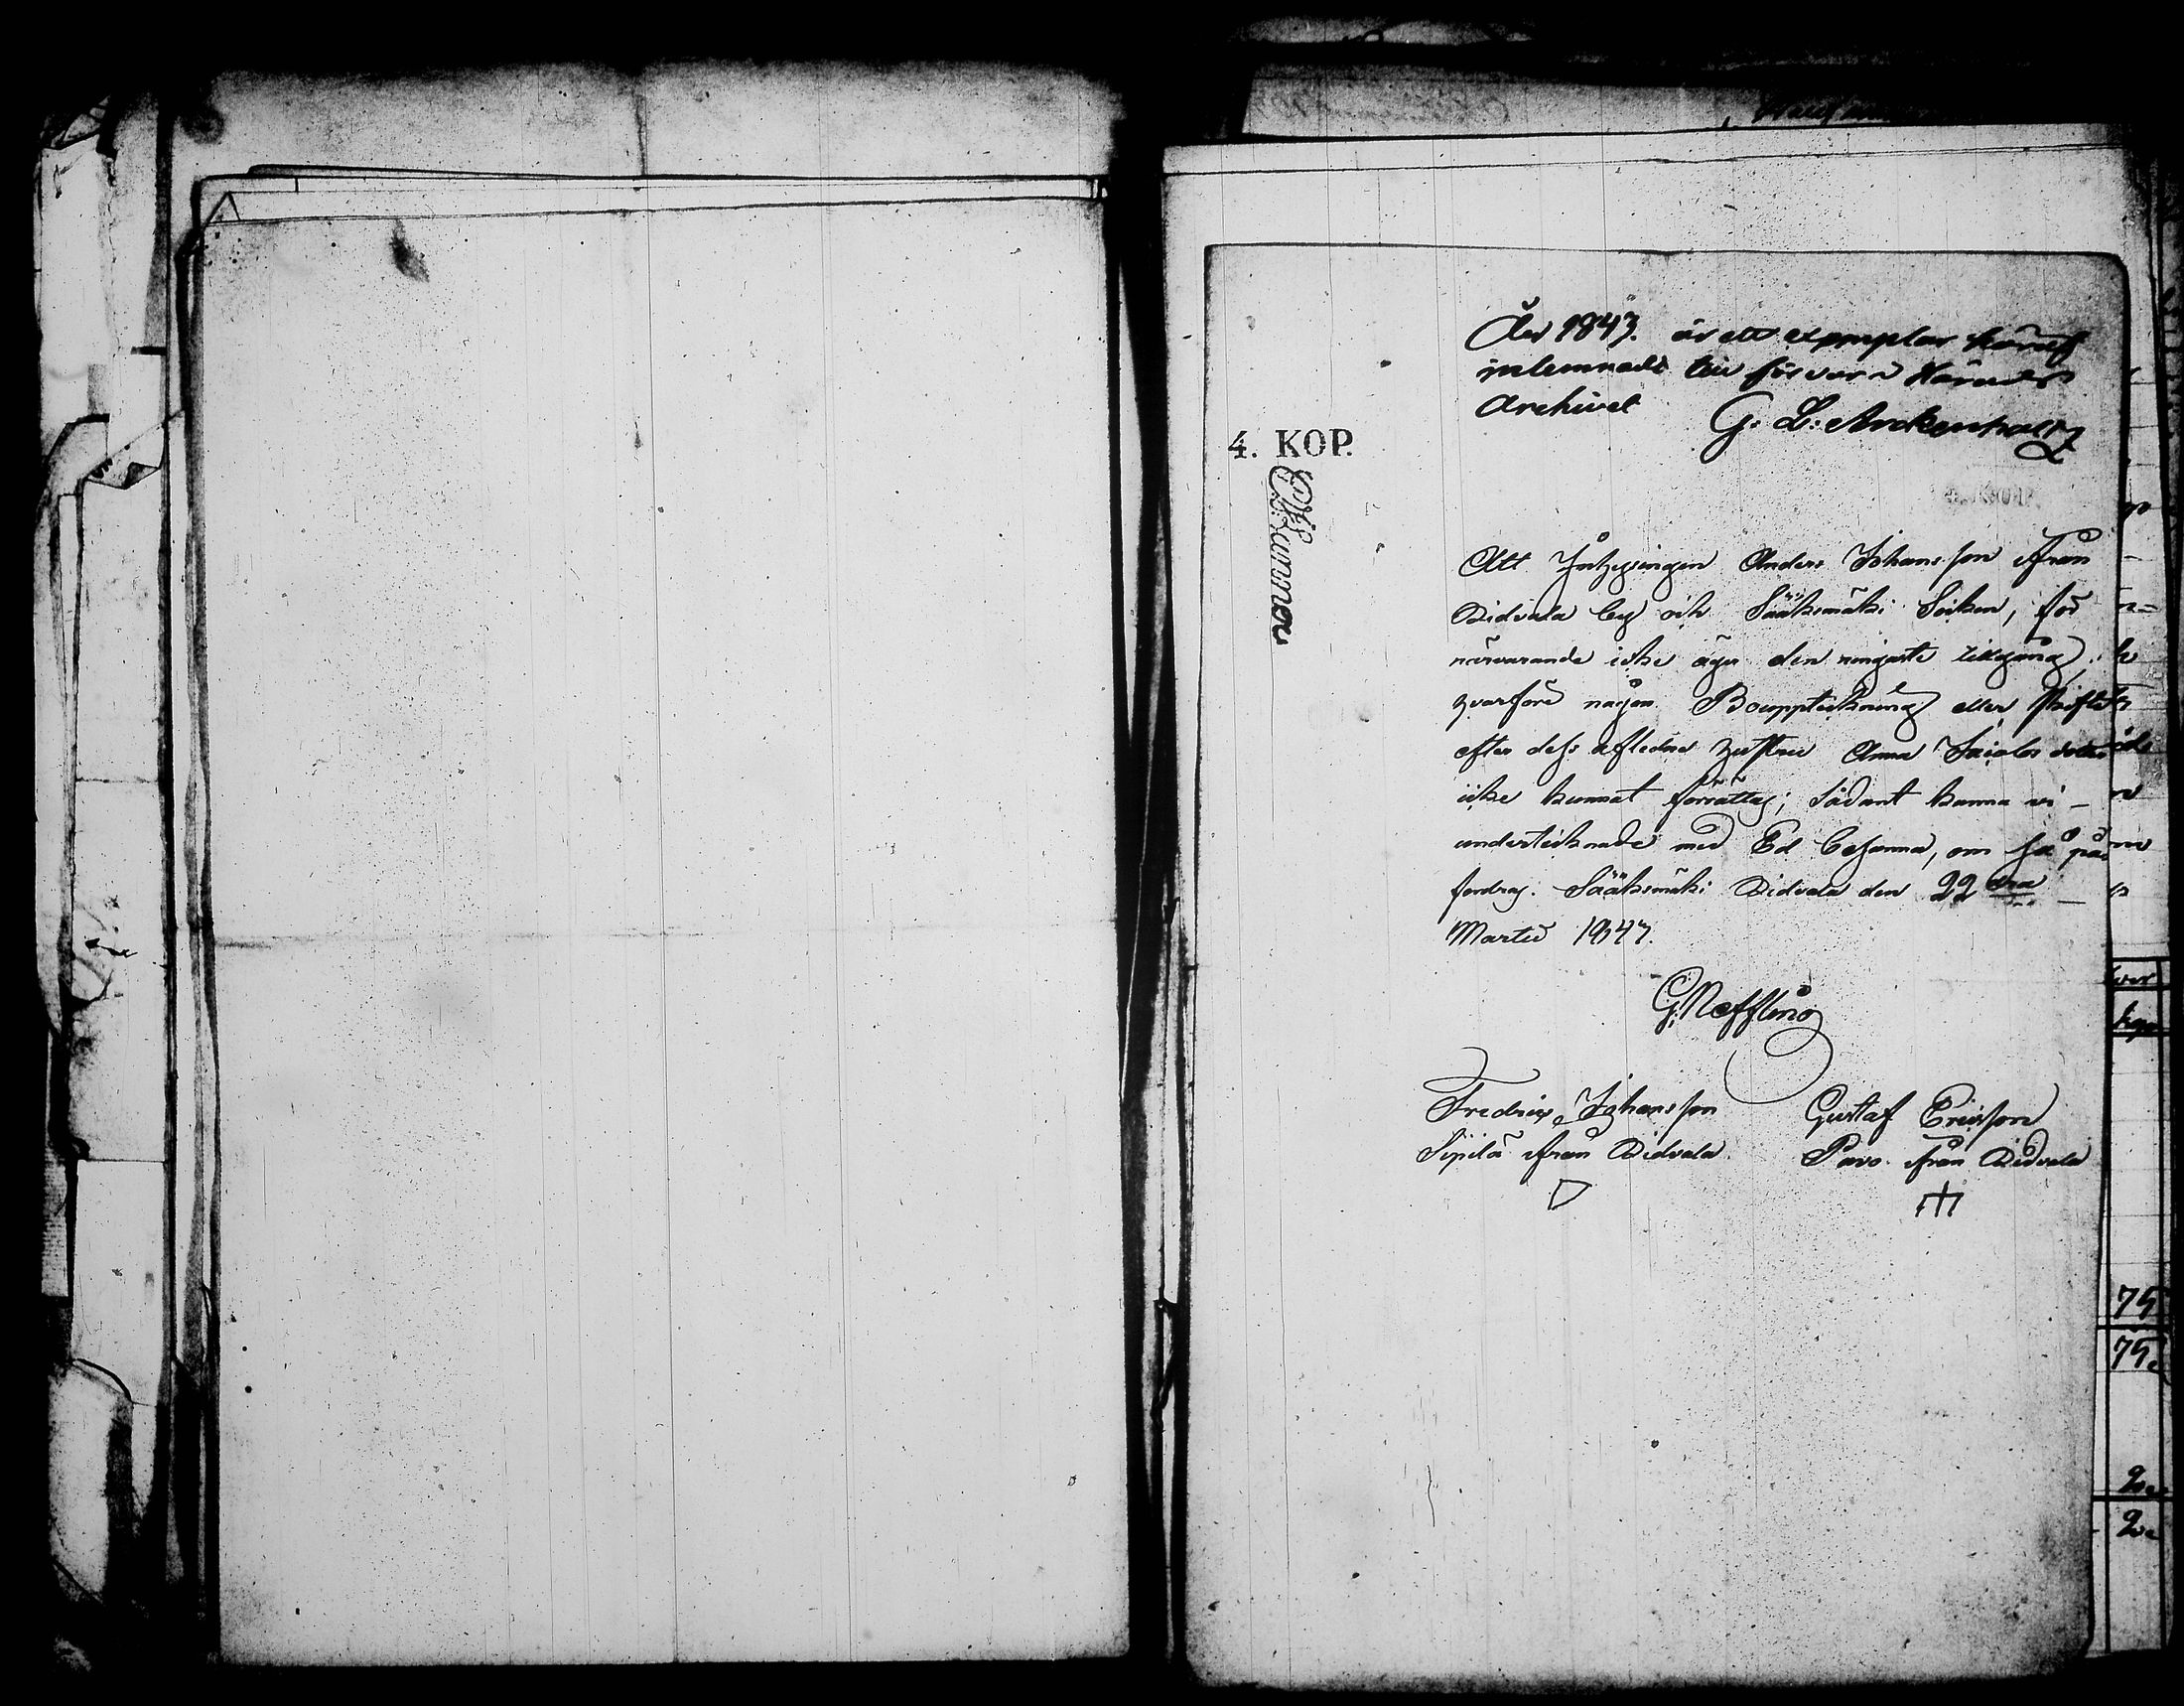 År 1847. är ett exemplar häraf
inlemnadt till förvar i Härads
Archivet
G. L. Arckenholtz
4. KOP.
Att Inhysingen Anders Johansson från
Ridvala by och Sääksmäki Socken, för
närvarande icke äger den ringaste tillgång,
hvarföre någon Bouppteckning eller skifte
efter dess afledne hustru Anna Jacobs dotter
icke kunnat förrättas; sådant kunna vi -
undertecknade med Ed besanna, om så på
fordras. Sääksmäki Ridvala den 22 dra -
Martii 1847.
G. Neffling
Fredric Johansson
Sipilä från Ridvala
Gustaf Ericsson
Pavo från Ridvala
75
75
2
2